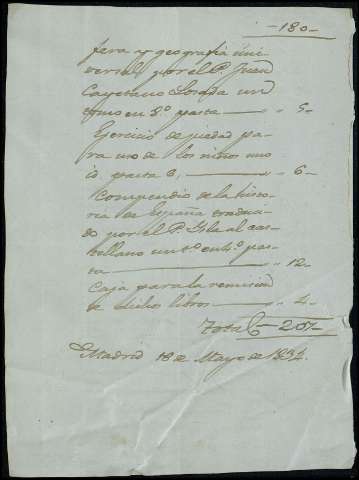 -180-
fera y geografia uni
versal, por el P. Juan
Cayetano Losada un
tomo en 8.º pasta — " 5-
Ejercicio de piedad pa
ra uso de los niños uno
id. pasta — " 6-
Compendio de la histo
ria de España traduci
do por el P. Isla al cas
tellano un t.º en 4.º pas
ta — " 12-
Caja para la remision
de dichos libros — " 4-
Total — 207-
Madrid 18 de Mayo de 1834.